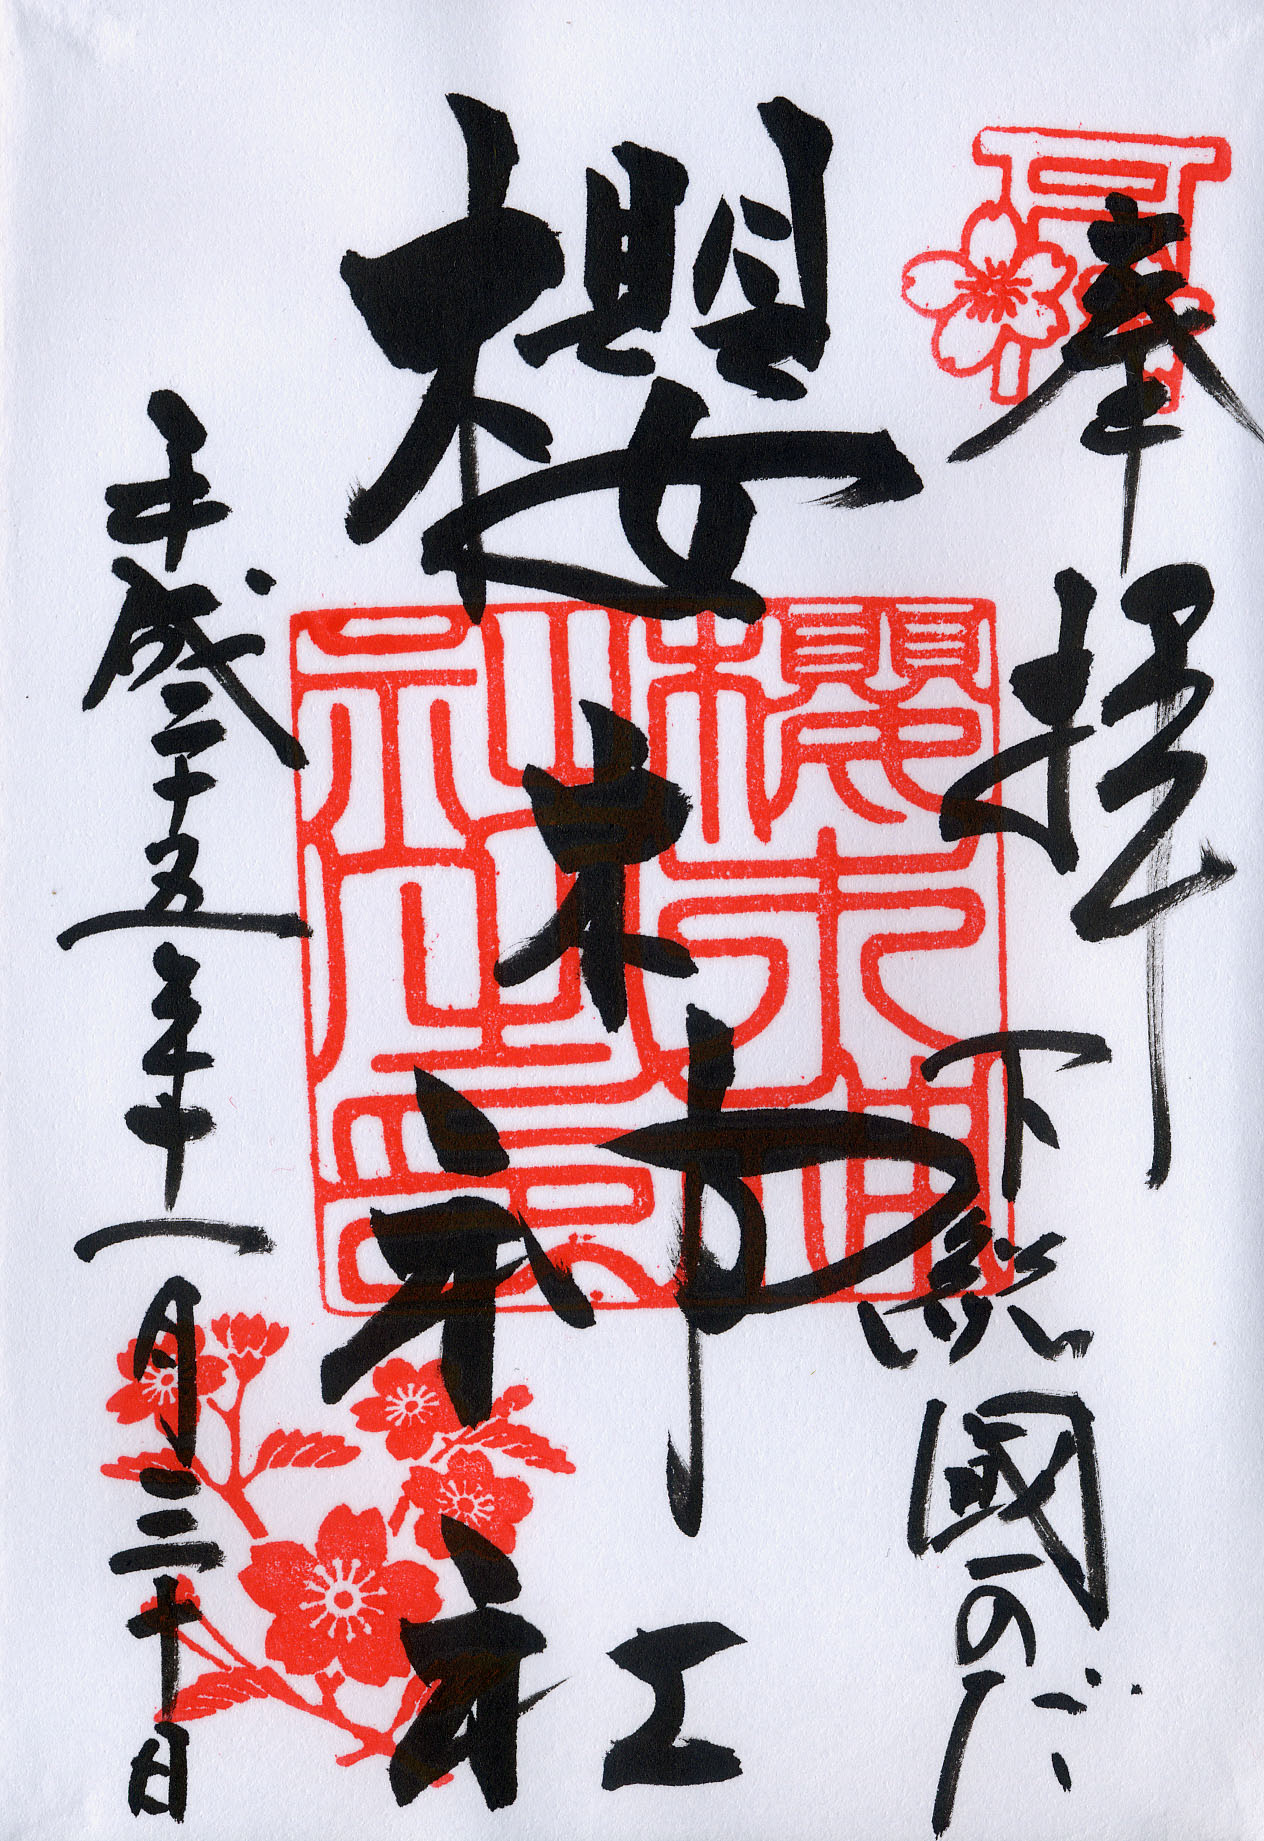 奉拝
下総國のだ
櫻木神社
平成二十五年十一月三十日
櫻木神社之印